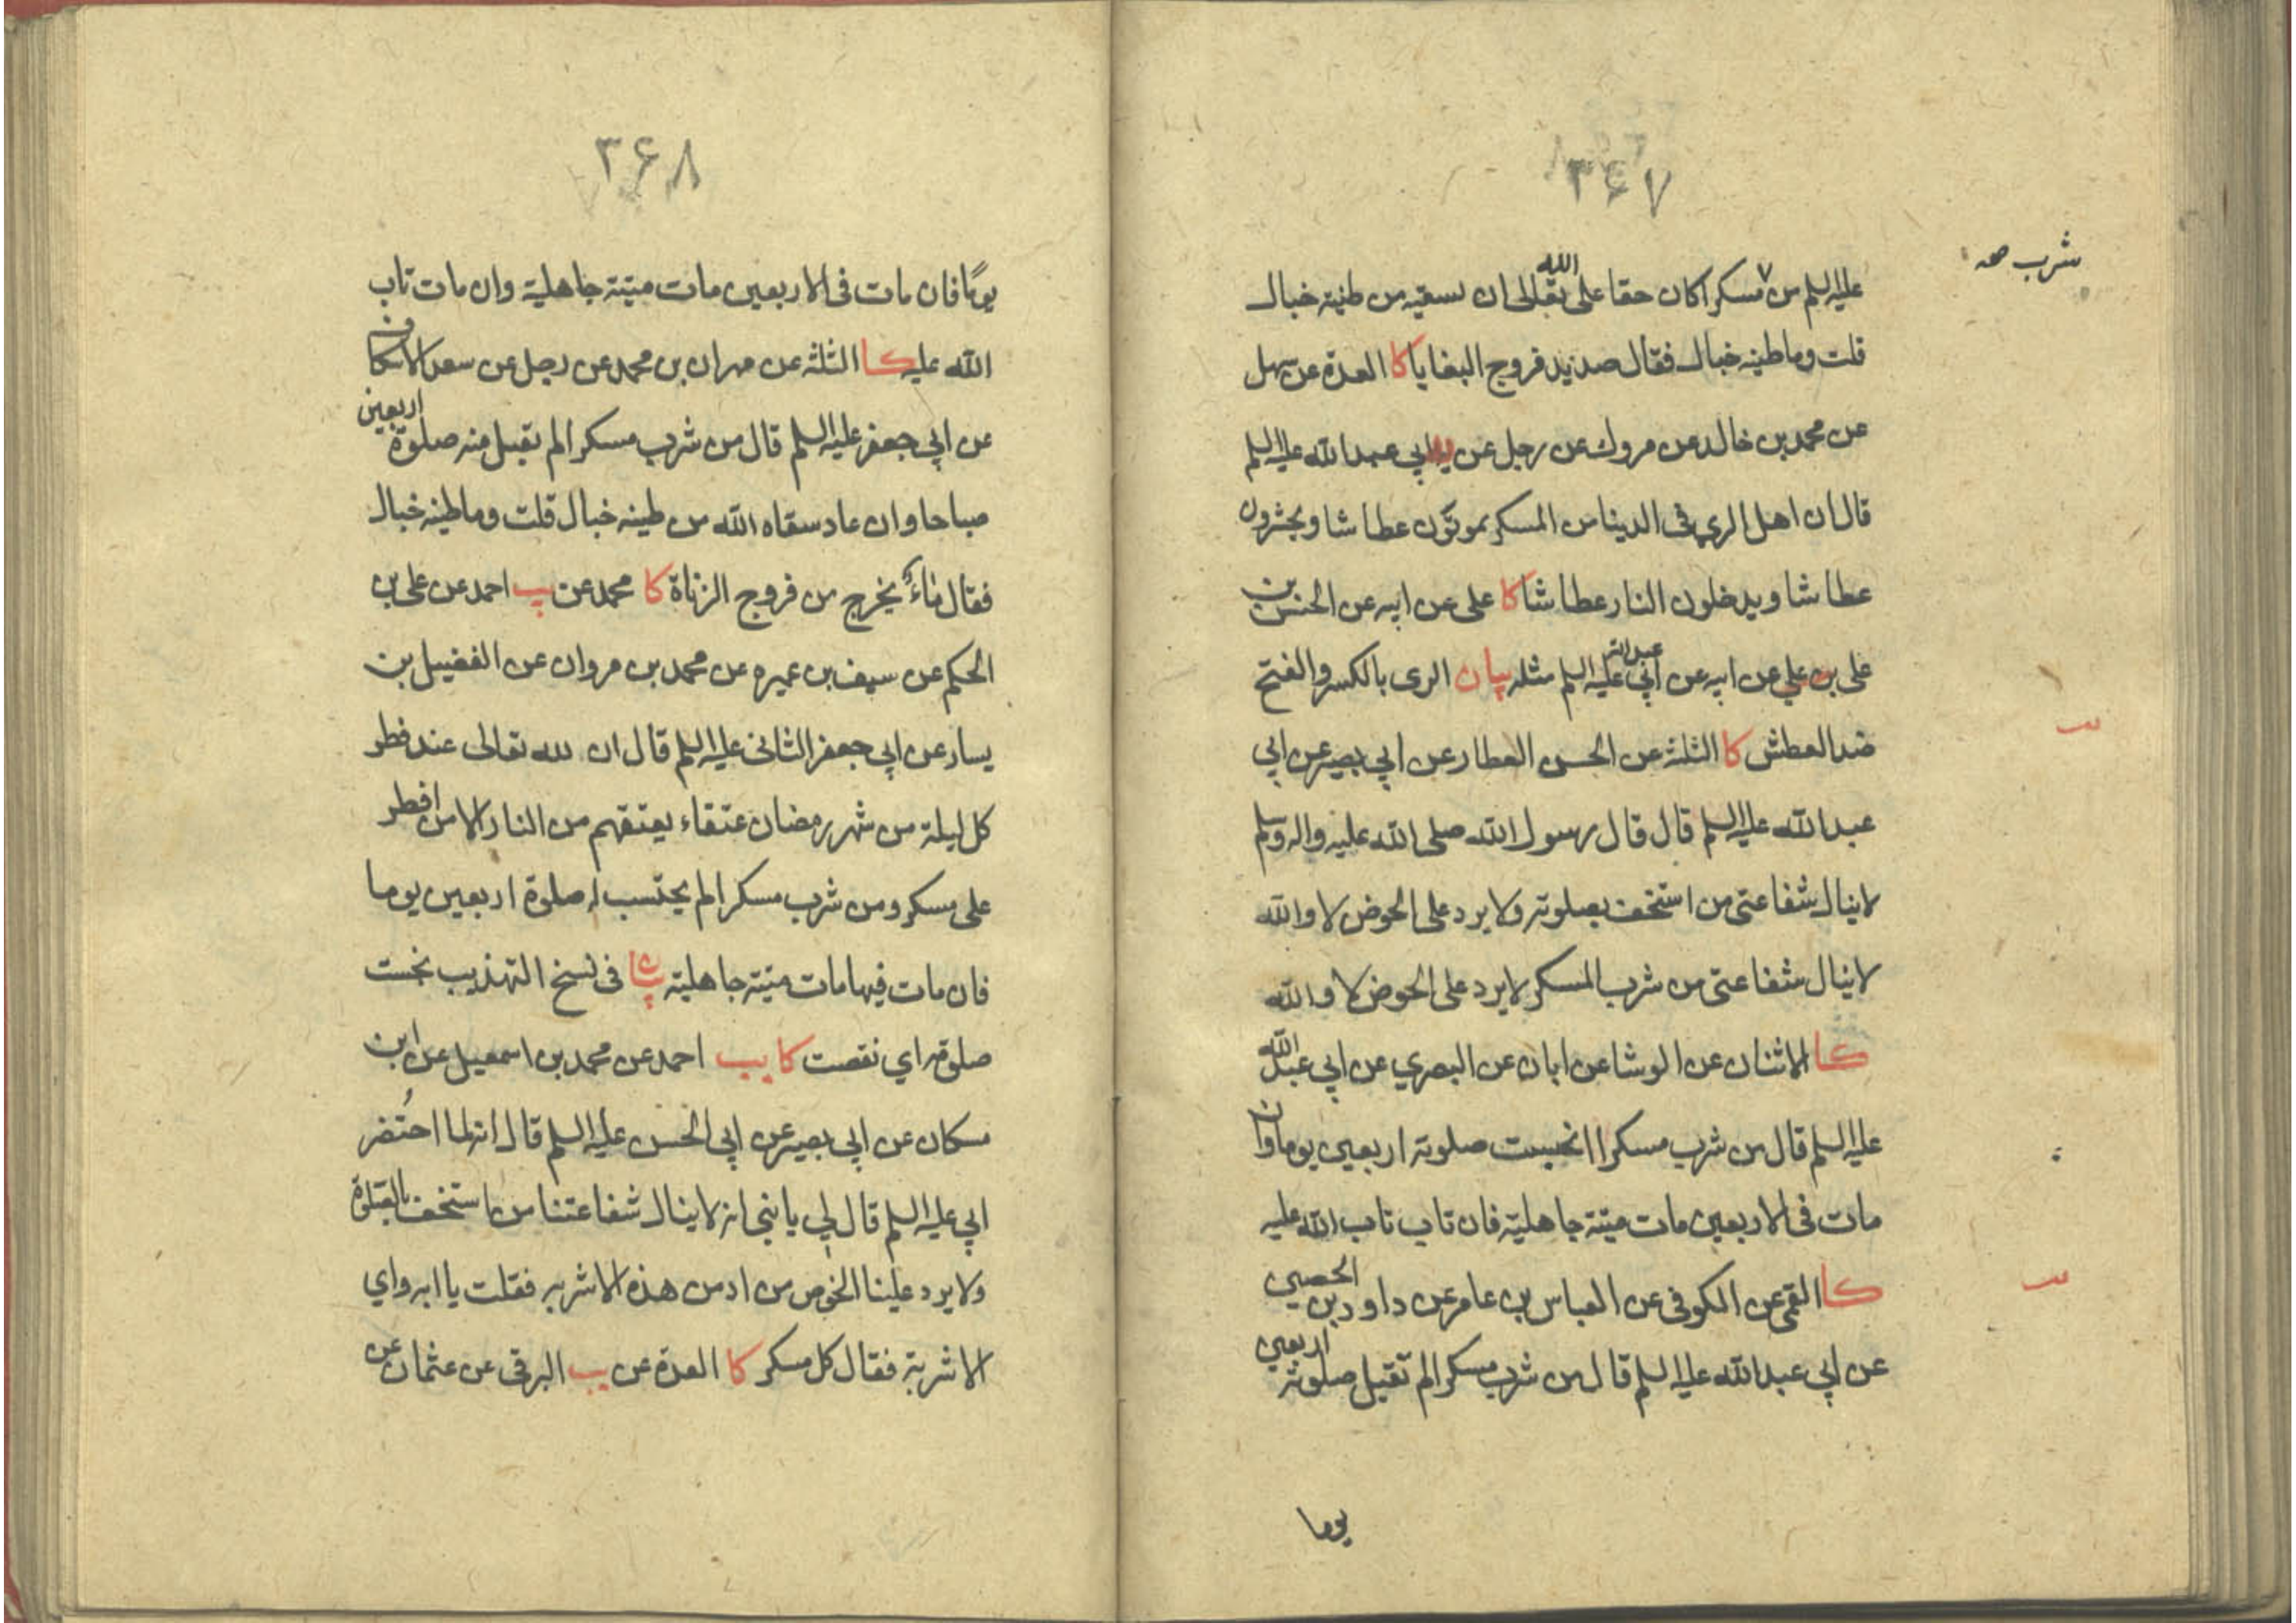 ۳۶۷
شرب صح
عليه السلم من ٧ مسكرا كان حقا على الله تعالى ان يسقيه من طينة خبال
قلت وما طينه خبال فقال صديد فروج البغايا كا العدة عن سهل
عن محمد بن خالد عن مروك عن رجل عن ابي عبد الله عليه السلم
قال ان اهل الري في الدينا من المسكر يموتون عطاشا ويحشرون
عطاشا ويدخلون النار عطاشا كا على عن ابيه عن الحسن بن
على بن علي عن ابيه عن ابي عبد الله عليه السلم مثله بيان الرى بالكسر والفتح
ضد العطش كا الثلثة عن الحسن العطار عن ابي بصير عن ابي
عبد الله عليه السلم قال قال رسول الله صلى الله عليه واله وسلم
لا ينال شفاعتى من استخف بصلوته ولا يرد على الحوض لا والله
لا ينال شفاعتى من شرب المسكر لا يرد على الحوض لا والله
كا الاثنان عن الوشا عن ابان عن البصري عن ابي عبد الله
عليه السلم قال من شرب مسكرا انحبست صلوته اربعين يوما وان
مات في الاربعين مات ميتة جاهلية فان تاب تاب الله عليه
كا القمى عن الكوفى عن العباس بن عامر عن داود بن الحصين
عن ابي عبد الله عليه السلم قال من شرب مسكرا لم تقبل صلوته اربعين
يوما
۳۶۸
يومًا فان مات فى الاربعين مات ميتة جاهلية وان مات تاب
الله عليه كا الثلثة عن مهران بن محمد عن رجل عن سعد الاسكاف
عن ابي جعفر عليه السلم قال من شرب مسكرا لم تقبل منه صلوة اربعين
صباحا وان عاد سقاه الله من طينه خبال قلت وما طينه خبال
فقال ماءٌ يخرج من فروج الزناة كا محمد عن يب احمد عن على بن
الحكم عن سيف بن عميره عن محمد بن مروان عن الفضيل بن
يسار عن ابي جعفر الثانى عليه السلم قال ان لله تعالى عند فطر
كل ليلة من شهر رمضان عتقاء يعتقهم من النار الا من افطر
على مسكر ومن شرب مسكرا لم يحتسب له صلوة اربعين يوما
فان مات فيها مات ميتة جاهلية في نسخ التهذيب بخست
صلوته اي نقصت كا يب احمد عن محمد بن اسمعيل عن ابن
مسكان عن ابي بصير عن ابي الحسن عليه السلم قال انه لما احتُضر
ابي عليه السلم قال لي يا بني انه لا ينال شفاعتنا من استخف بالصلوة
ولا يرد علينا الحوض من ادمن هذه الاشربه فقلت يا ابه واي
الاشربة فقال كل مسكر كا العدة عن يب البرقى عن عثمان عن